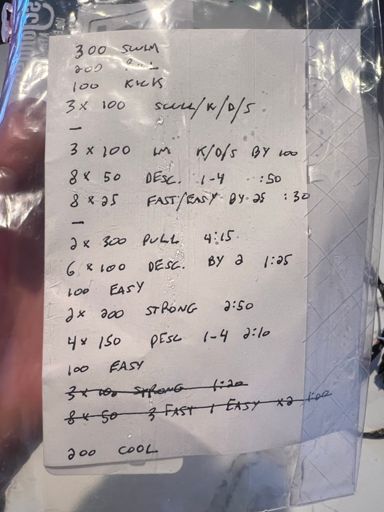 300 SWIM
200
100 KICK
3 x 100 SCULL/K/D/S
—
3 x 100 IM K/D/S BY 100
8 x 50 DESC. 1-4 :50
8 x 25 FAST/EASY BY 25 :30
—
2 x 300 PULL 4:15
6 x 100 DESC. BY 2 1:25
100 EASY
2 x 200 STRONG 2:50
4 x 150 DESC 1-4 2:10
100 EASY
3 x 100 STRONG 1:20
8 x 50 3 FAST 1 EASY x2 1:00
200 COOL